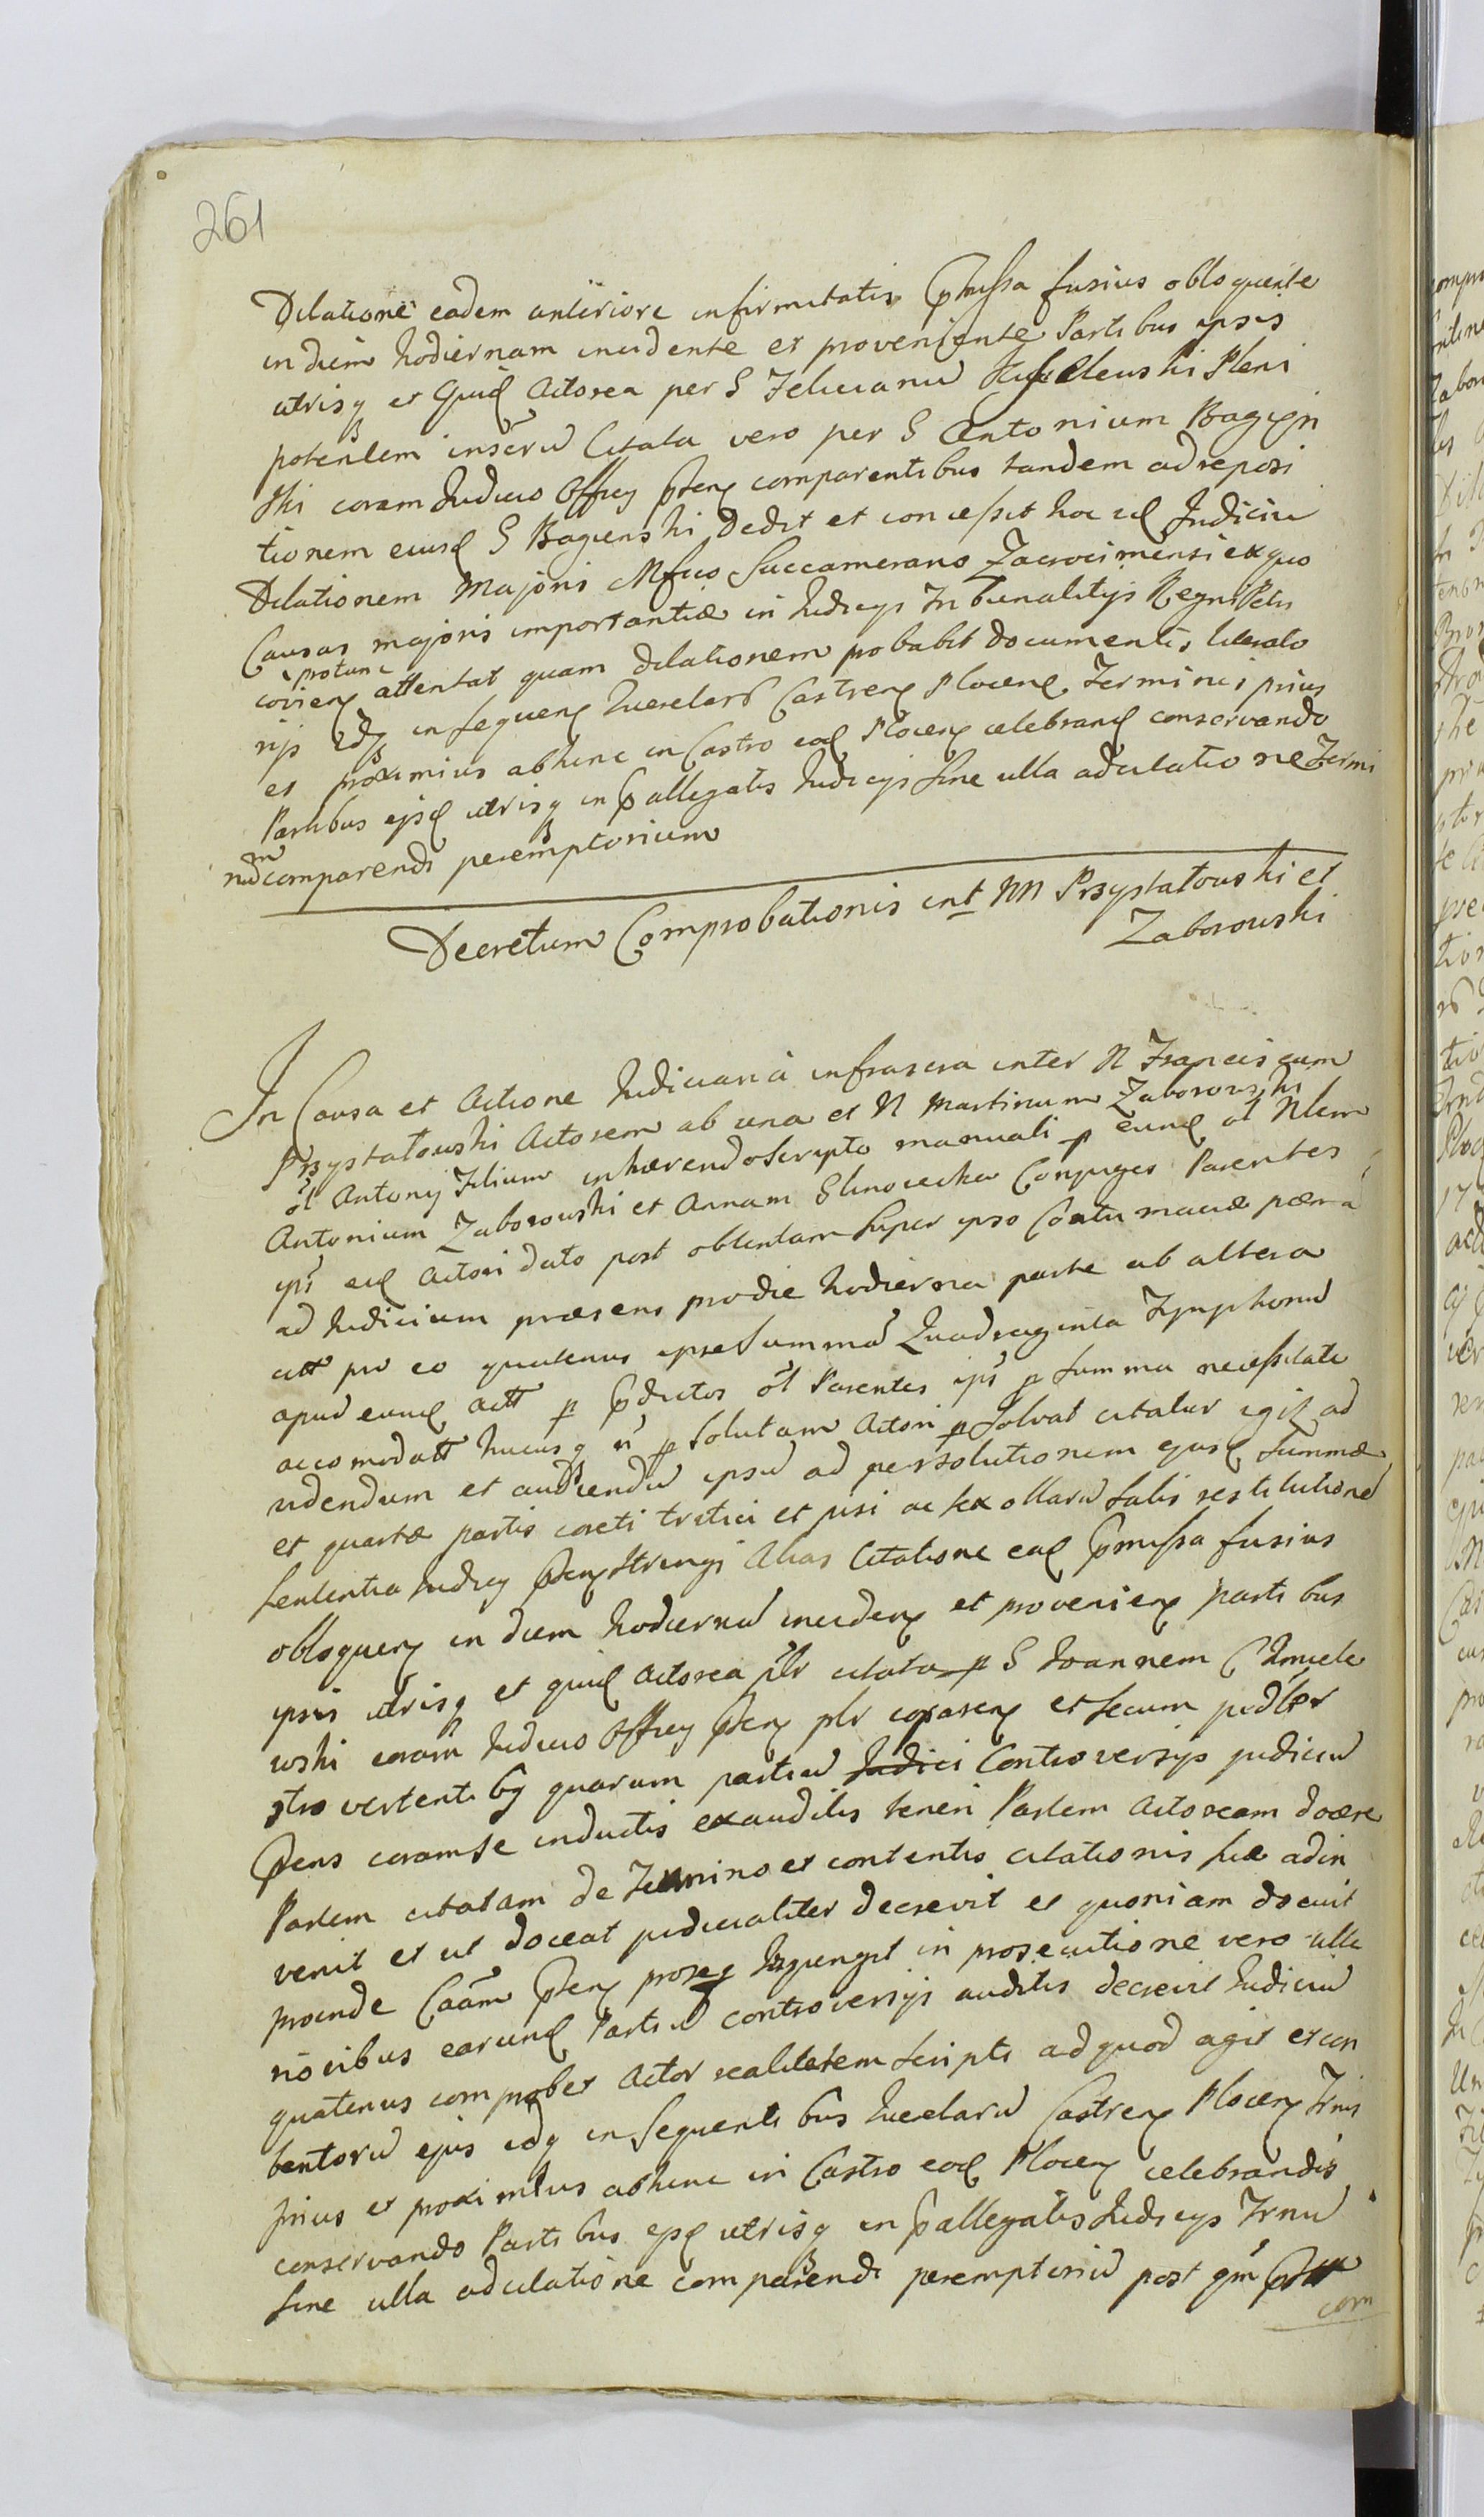 261
Dilatione eadem anteriore infirmitatis pmissa fusius obloquente
in diem hodiernam incidente et proveniente Partibus ipsis
utrisq et Quid Actorea per G Felicianu Pleni
potentem inseru Citata vero per G Antonium Bagien
ski coram Judicio Officy pten comparentibus tandem ad reposi
tionem eiusd G Bagienski Dedit et concessit hoc id Judiciu
Dilationem Majoris Mfico Succamerano Zacrocimensi ex quo
Causas majoris importantiæ in Judicijs Tribunalitijs Regni Petr
covien protunc attentat quam dilationem probabit documentis literato
rijs idq in sequen Querelaru Castren Plocen Terminis prius
et proximius abhinc in Castro eod Plocen celebrand conservando
Partibus ejsd utrisq in pallegatis Judicijs sine ulla adcitatione Termi
num comparendi peremptorium
Decretum Comprobationis int NN Przystałowski et
Zaborowski
In Causa et Actione Judiciaria infrascra inter N Franciscum
Przystałowski Actorem ab una et N Martinum Zaborowski
ol Antonij Filium inhærendo scripto manuali p eund ol Nlem
Antonium Zaborowski et Annam Glinoiecka Conjuges Parentes
ips eid Actori dato post obtentam super ipso Contumaciæ pæna
ad Judicium præsens pro die hodierna parte ab altera
citt pro eo quatenus ipse summa Quadraginta Tynphonu
apud eund actt p pdictos ol Parentes ips p summa necessitate
accomodatt hucusq n psolutam Actori psolvat citatur igit ad
videndum et audiendu ipsu ad persolutionem ejusd summæ
et quartæ partis coreti tritici et pisi ac sex ollaru salis restitutione
sententia Judicy pten stringi Alias Citatione ead pmissa fusius
obloquen in diem hodiernu inciden et provenien partibus
ipsis utrisq et quid Actorea plr citata p G Joannem Chmiele
wski coram Judicio Offficy pten plr coparen et secum judlr
ctro vertentibg quarum partiu Judici Controversijs judiciu
ptens coram se inductis exauditis teneri Partem Actoream docere
Partem citatam de Termino et contentis citationis suæ adin
venit et ut doceat judicialiter decrevit et quoniam docuit
proinde Caam pten proseq injungit in prosecutione vero ulte
rioribus earund Partiu controversijs auditis decrevit Judiciu
quatenus comprobet Actor realitatem scripti ad quod agit et con
tentoru ejus idq in sequentibus Querelaru Castren Plocen Trnis
prius et proximius abhinc in Castro eod Plocen celebrandis
conservando Partibus ejsd utrisq in pallegatis Judicijs Trnu
sine ulla adcitatione comparendi peremptoriu post qm
com